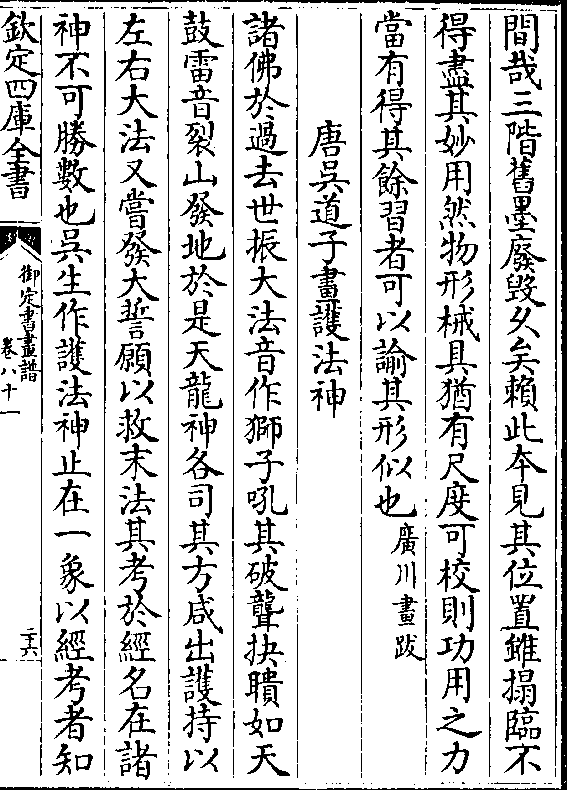 間哉三階舊墨廢毁久矣賴此本見其位置雖搨臨不
得盡其妙用然物形械具猶有尺度可校則功用之力
當有得其餘習者可以諭其形似也廣川畫跋
唐吳道子畫護法神
諸佛於過去世振大法音作獅子吼其破聾抉聵如天
鼓雷音裂山發地於是天龍神各司其方咸出護持以
左右大法又嘗發大誓願以救末法其考於經名在諸
神不可勝數也吳生作護法神止在一象以經考者知
欽定四庫全書
御定書畫譜
卷八十一
二十六